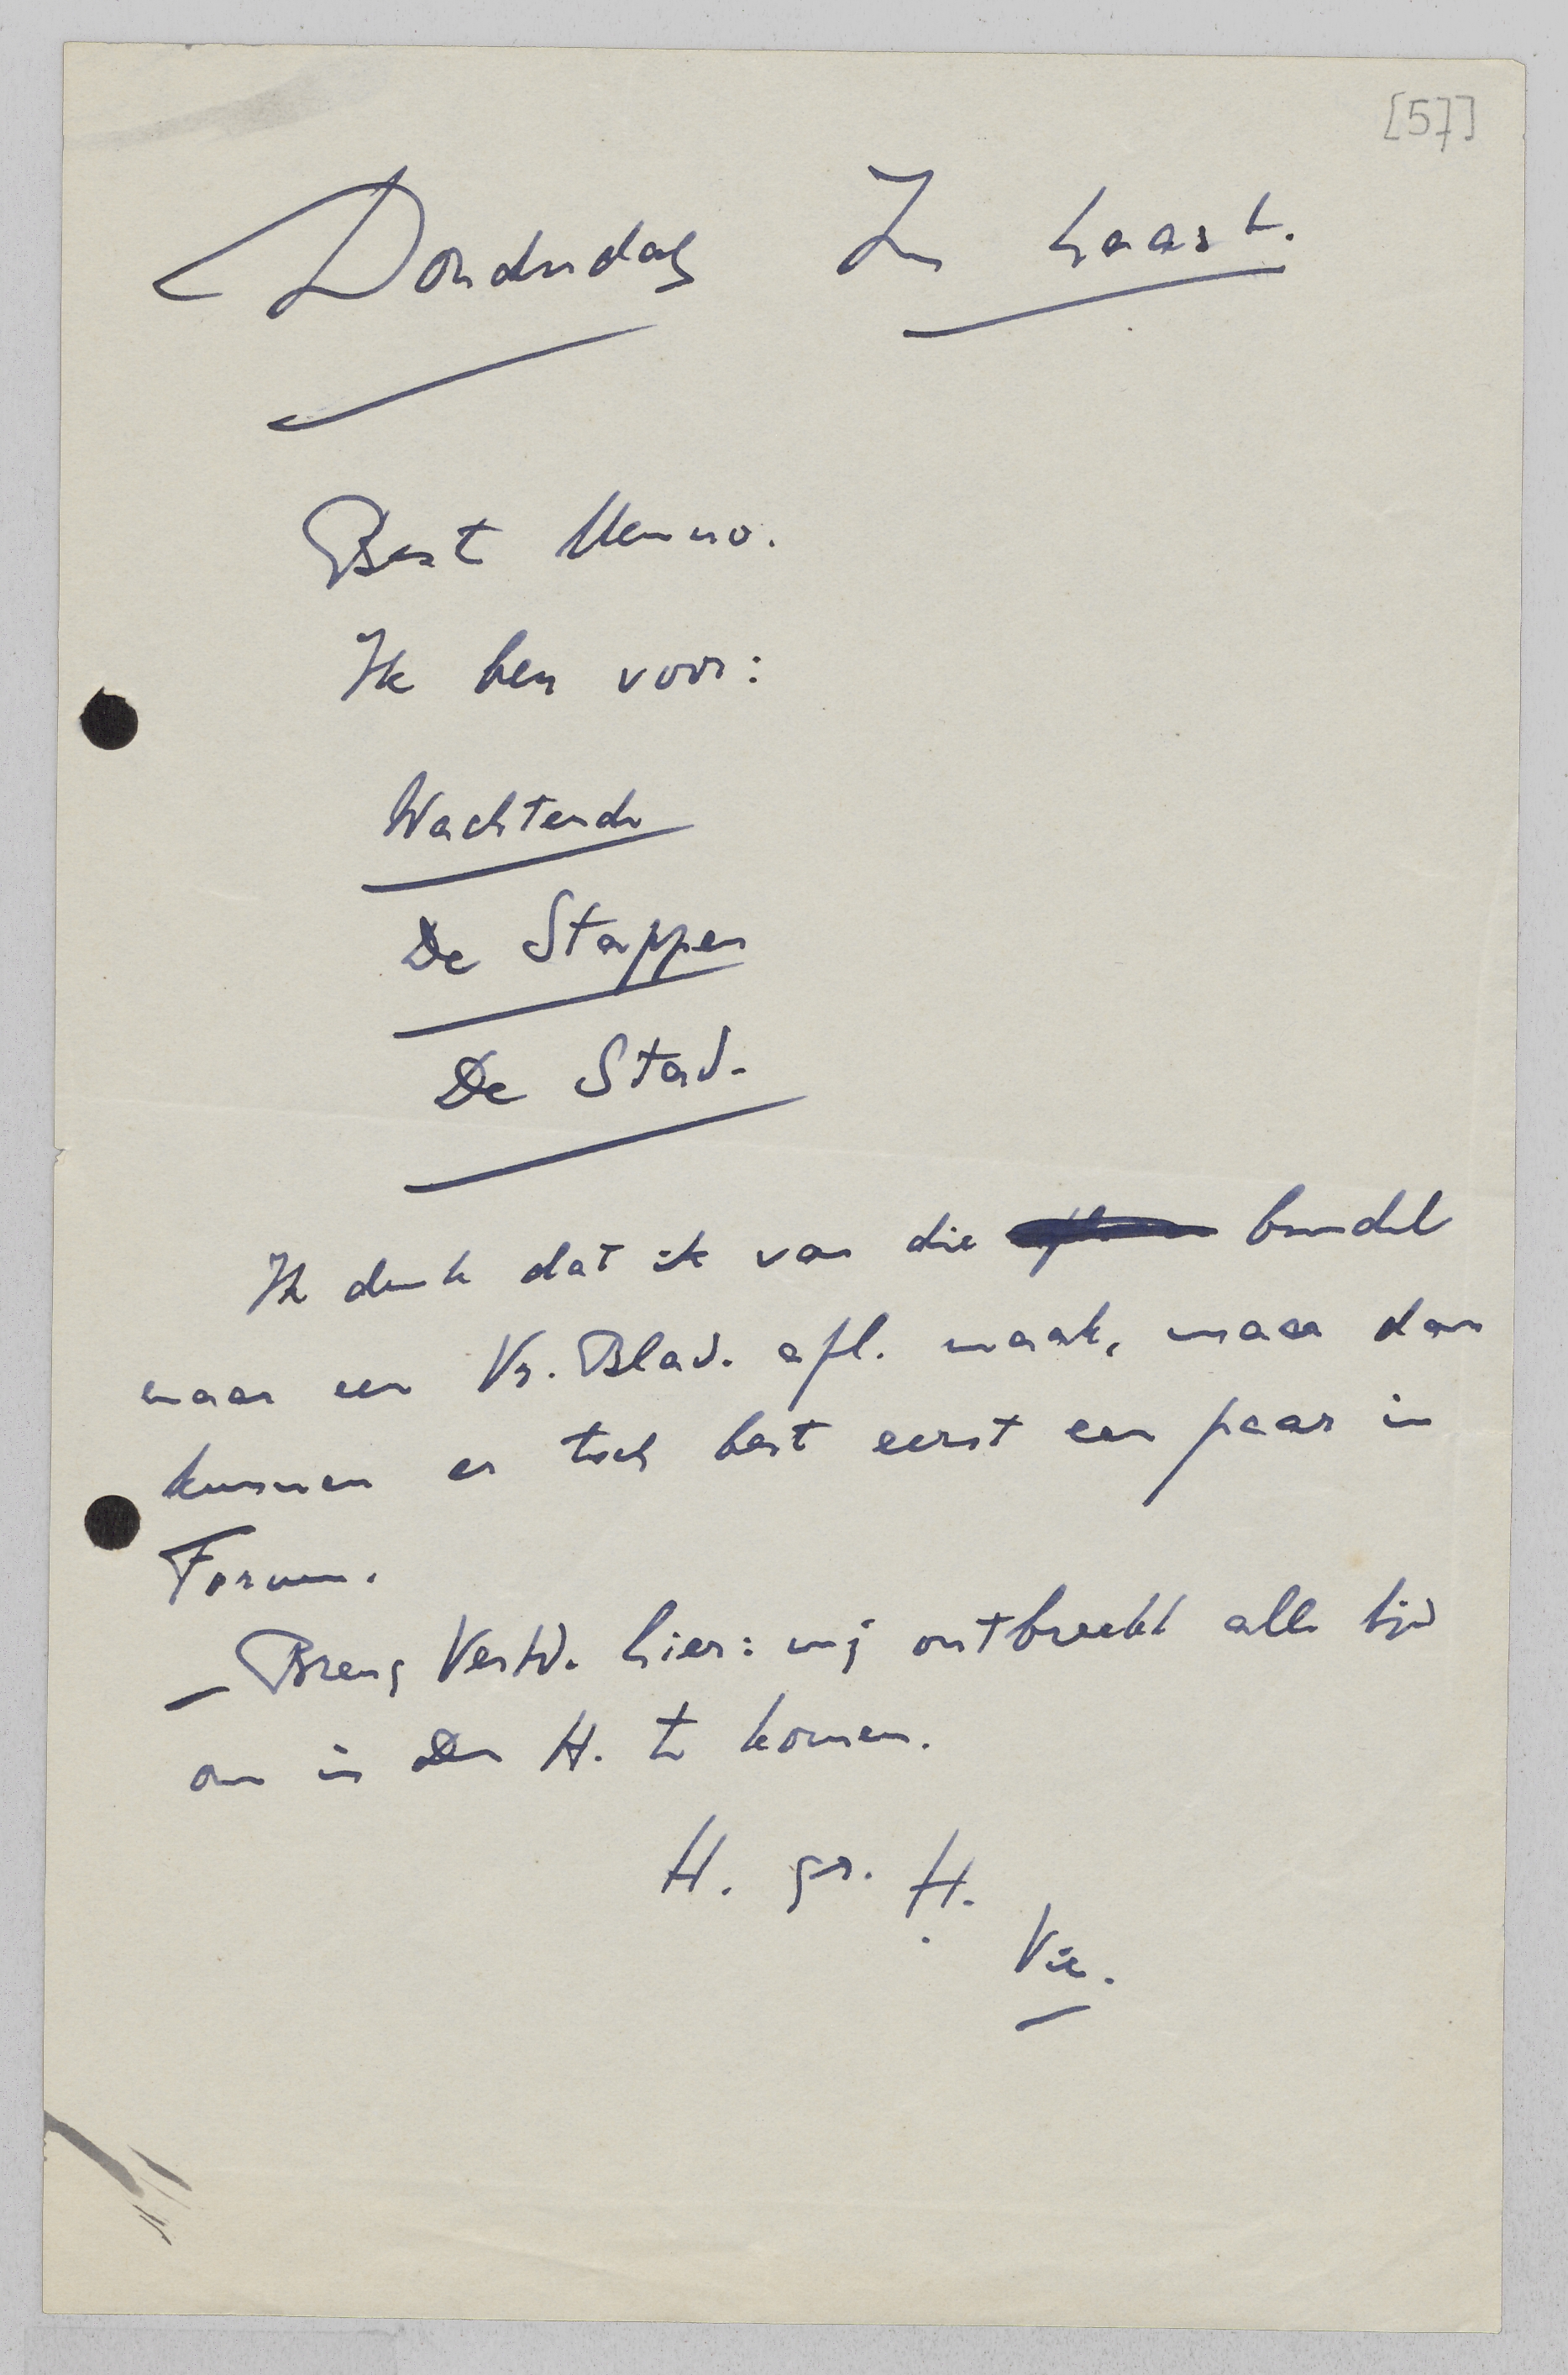 [57]
Donderdag In haast.
Best Menno.
Ik ben voor:
Wachtende
De Stappen
De Stad.
Ik denk dat ik van die bundel
maar een Vr. Blad. afl. maak, maar dan
kunnen er toch best eerst een paar in
Forum.
— Breng Vestd. hier: mij ontbreekt alle tijd
om in Den H. te komen.
H. gr. H.
Vic.